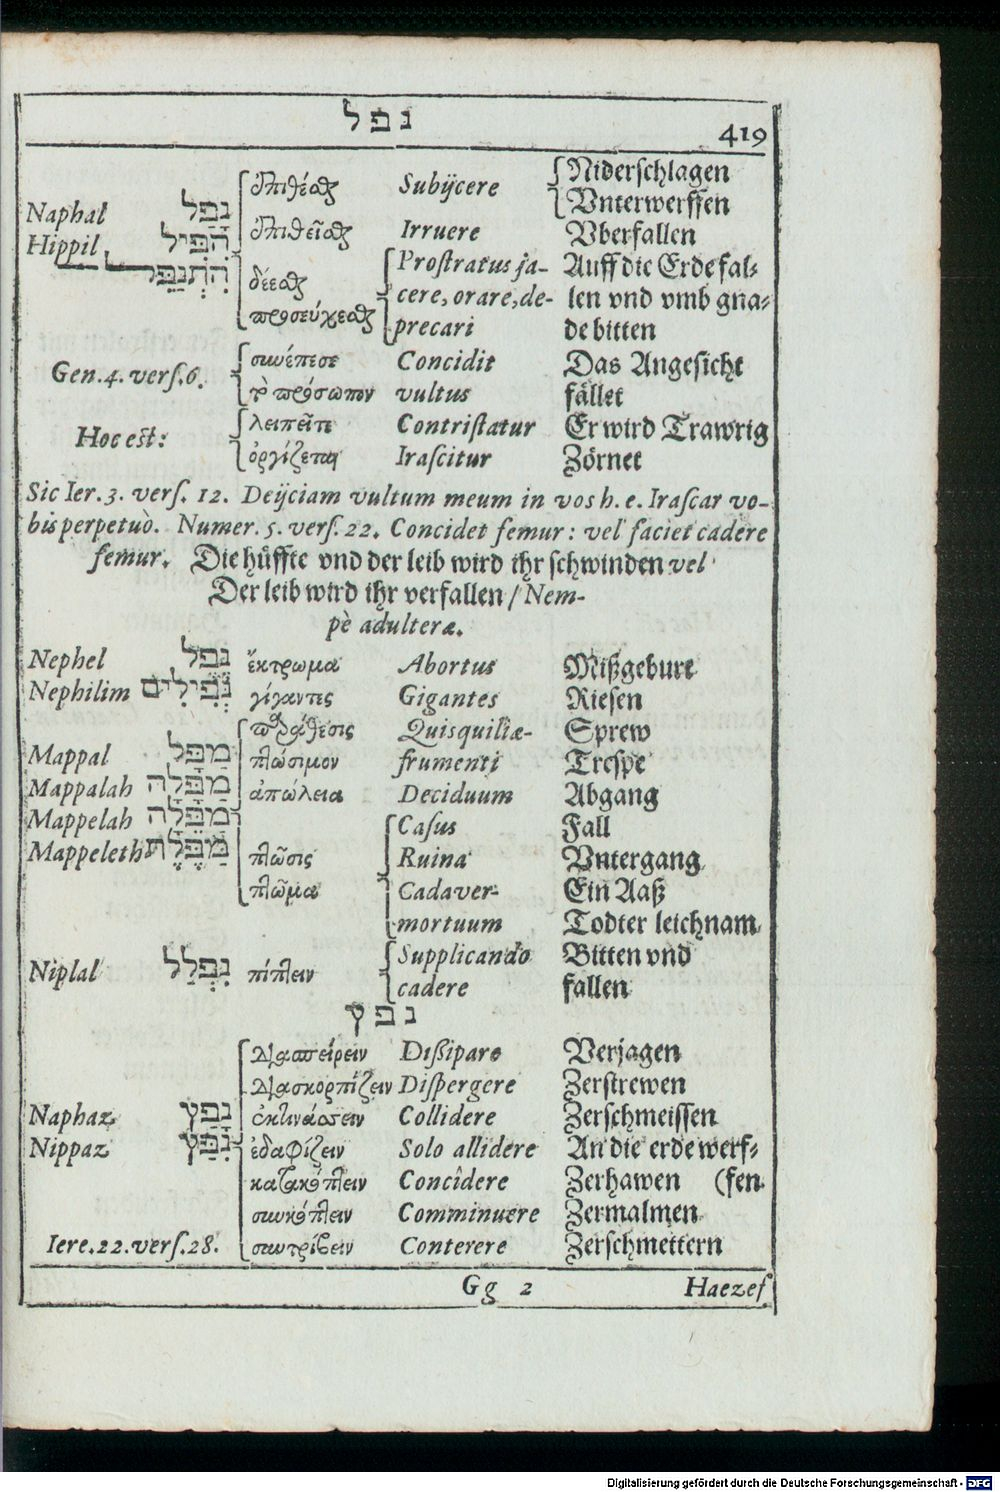 נפל
419
ἐπιθέσθαι Subijcere Niderschlagen
Vnterwerffen
Naphal נָפַל
Hippil הִפִּיל ἐπιθεῖσθαι Irruere Vberfallen
הִתְנַפֵּל δέεσθαι Prostratus ja- Auff die Erde fal-
cere, orare, de- len vnd vmb gna-
προσεύχεσθαι precari de bitten
Gen. 4. vers. 6. συνέπεσε Concidit Das Angesicht
τὸ πρόσωπον vultus fället
Hoc est: λυπεῖται Contristatur Er wird Trawrig
ὀργίζεται Irascitur Zörnet
Sic Ier. 3. vers. 12. Deijciam vultum meum in vos h. e. Irascar vo-
bis perpetuò. Numer. 5. vers. 22. Concidet femur: vel faciet cadere
femur. Die hüffte vnd der leib wird ihr schwinden vel
Der leib wird ihr verfallen / Nem-
pè adulteræ.
Nephel נֵפֶל ἔκτρωμα Abortus Mißgeburt
Nephilim נְפִילִים γίγαντες Gigantes Riesen
παράθεσις Quisquiliæ- Sprew
Mappal מַפָּל πτώσιμον frumenti Trespe
Mappalah מַפָּלָה ἀπώλεια Deciduum Abgang
Mappelah מַפֵּלָה Casus Fall
Mappeleth מַפֶּלֶת πτῶσις Ruina Vntergang
πτῶμα Cadaver- Ein Aaß
mortuum Todter leichnam
Niplal נִפְלַל πίπτειν Supplicando Bitten vnd
cadere fallen
נפץ
διασπείρειν Dißipare Verjagen
διασκορπίζειν Dispergere Zerstrewen
Naphaz נָפַץ ἐκτινάσσειν Collidere Zerschmeissen
Nippaz נִפַּץ ἐδαφίζειν Solo allidere An die erde werf-
κατακόπτειν Concîdere Zerhawen (fen
συγκόπτειν Comminuere Zermalmen
Iere. 22. vers. 28. συντρίβειν Conterere Zerschmettern
Gg 2 Haezef
Digitalisierung gefördert durch die Deutsche Forschungsgemeinschaft - DFG